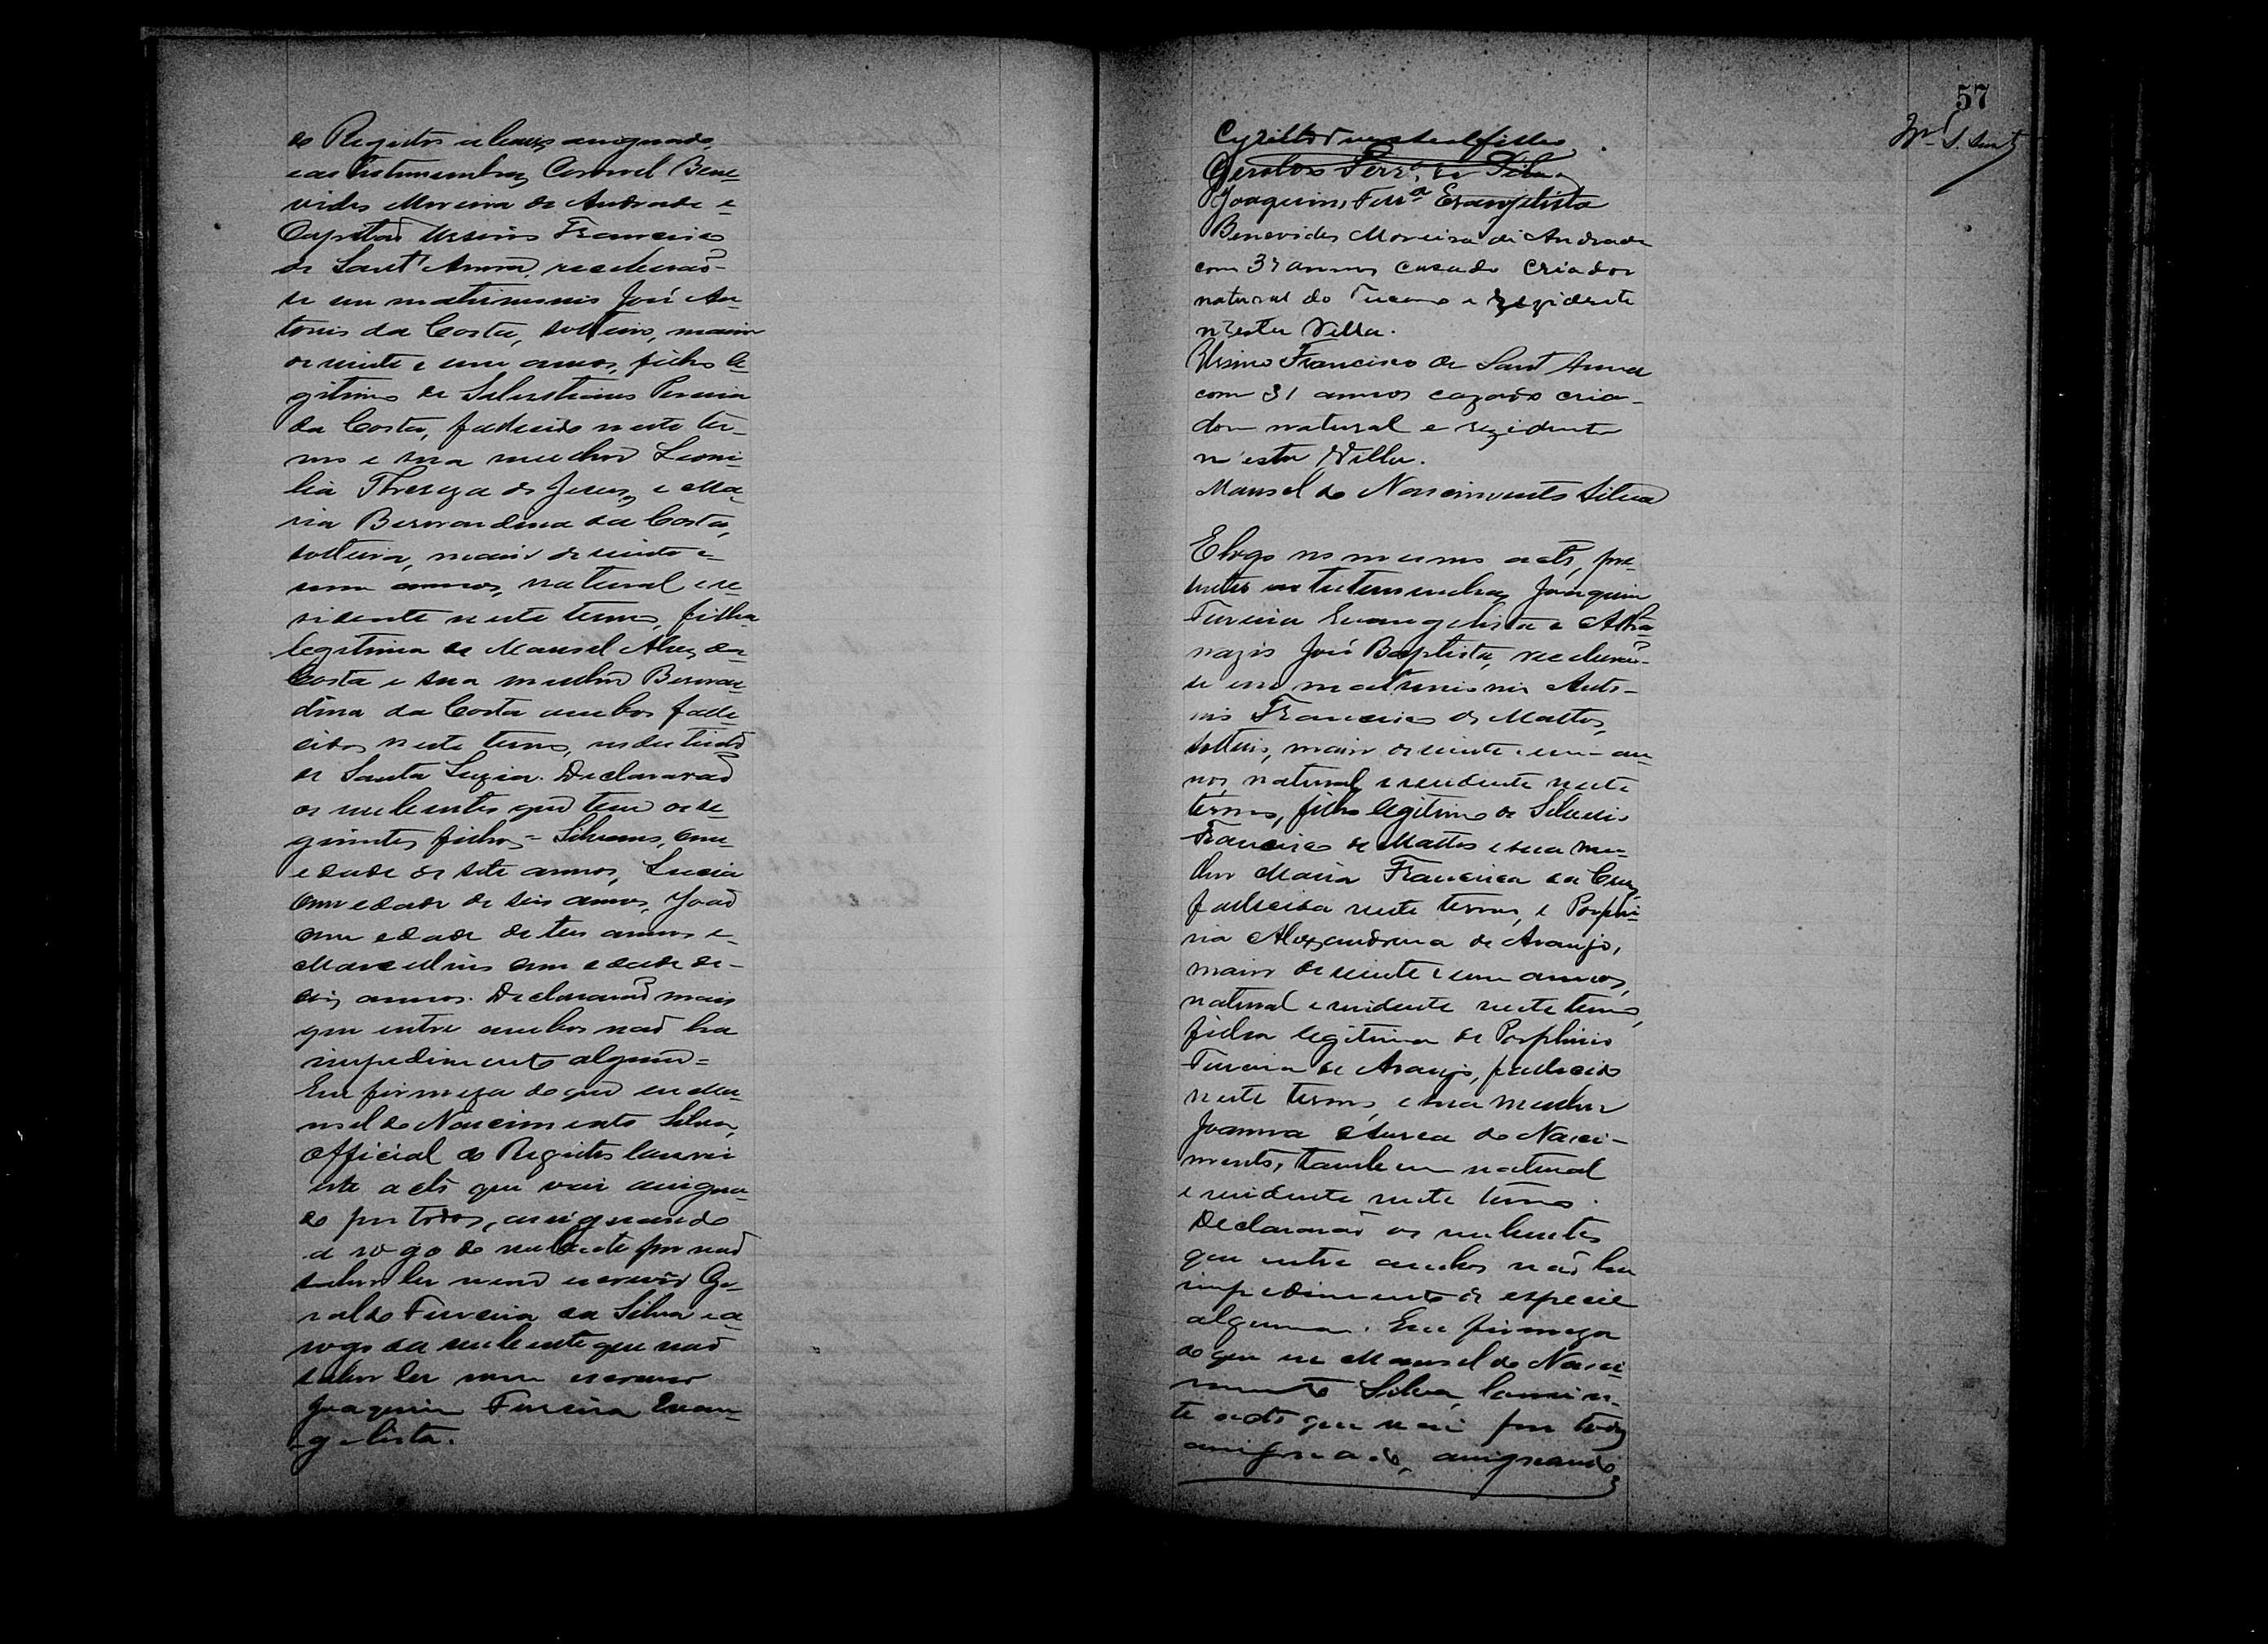 do Registro abaixo assignado,
e as testemunhas, Coronel Bene-
vides Moreira de Andrade e
Capitaõ Ursino Francisco
de Sant'Anna, receberaõ-
se em matrimonio José An-
tonio da Costa, solteiro, maior
de vinte e um annos, filho le-
gitimo de Silvestriano Pereira
da Costa, fallecido neste ter-
mo e sua mulher Leoni-
lia Thereza de Jesus, e Ma-
ria Bernardina da Costa,
solteira, maior de vinte e
um annos, natural e re-
sidente neste termo, filha
legitima de Manoel Alves da
Costa e sua mulher Bernar-
dina da Costa ambos falle-
cidos neste termo,
de Santa Luzia. Declararaõ
os nubentes que tem os se-
guintes filhos = Silvano, com
edade de sete annos, Lucia
com edade de seis annos, Joaõ
com edade de tres annos e
Marcelino com edade de
dois annos. Declararaõ mais
que entre ambos naõ ha
impedimento algum =
Em firmeza do que eu Ma-
noel do Nascimento Silva,
Official do Registro lavrei
este acto que vai assigna-
do por todos, assignando
a rogo do nubente por naõ
saber ler nem escrever Ge-
raldo Ferreira da Silva e a
rogo da nubente que naõ
saber ler nem escrever
Joaquim Ferreira Evan-
gelista.
57
Cyrillo
Geraldo Ferrª da Silva
Joaquim Ferrª Evangelista
Benevides Moreira de Andrade
com 37 annos casado criador
natural do Tucano e rezidente
n'esta Villa.
Ursino Francisco de Sant Anna
com 31 annos cazado cria-
dor natural e rezidente
n'esta Villa.
Manoel do Nascimento Silva
E logo no mesmo acto, pre-
sentes as testemunhas Joaquim
Ferreira Evangelista e Atha-
nazio José Baptista, receberaõ-
se em matrimonio Anto-
nio Francisco de Mattos,
solteiro, maior de vinte e um an-
nos, natural e residente neste
termo, filho legitimo de Silverio
Francisco de Mattos e sua mu-
lher Maria Francisca da Cruz,
fallecida neste termo, e Porphi-
ria Alexandrina de Araujo,
maior de vinte e um annos,
natural e residente neste termo,
filha legitima de Porphirio
Ferreira de Araujo, fallecido
neste termo, e sua mulher
Joanna Aurea do Nasci-
mento, tambem natural
e residente neste termo.
Declararaõ os nubentes
que entre ambos naõ ha
impedimento de especie
alguma. Em firmeza
do que eu Manoel do Nasci-
mento Silva, lavrei es-
te acto que vai por todos
assignado, assignando